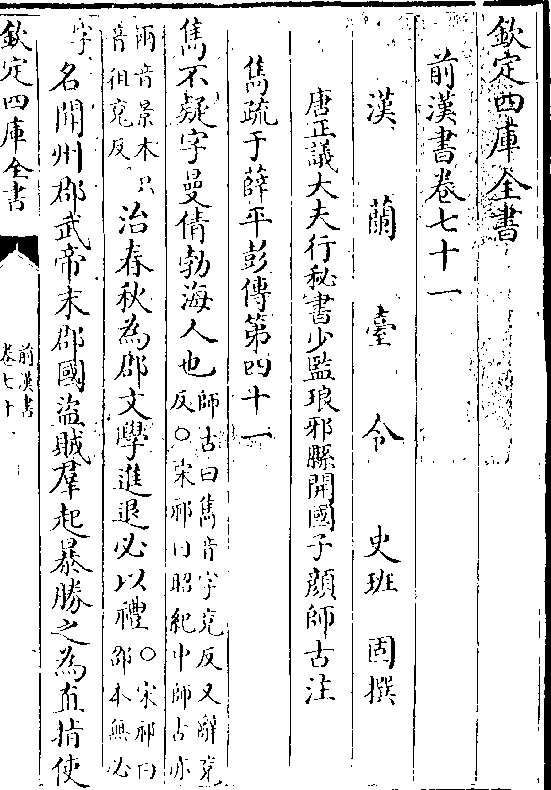 欽定四庫全書
前漢書卷七十一
漢蘭臺令史班固撰
唐正議大夫行秘書少監琅邪縣開國子顔師古注
雋疏于薛平彭傳第四十一
雋不疑字曼倩勃海人也師古曰雋音字兗反又辭兗反○宋祁曰昭紀中師古亦
兩音景本只音徂兗反治春秋為郡文學進退必以禮○宋祁曰邵本無必
字名聞州郡武帝末郡國盜賊羣起暴勝之為直指使
欽定四庫全書
前漢書
卷七十